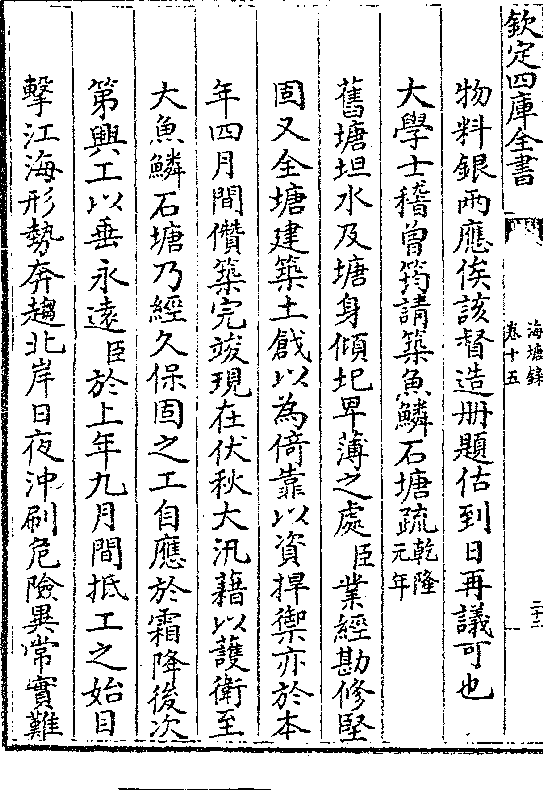 欽定四庫全書
海塘錄
卷十五
二十三
物料銀兩應俟該督造册題估到日再議可也
大學士稽曾筠請築魚鱗石塘疏乾隆元年
舊塘坦水及塘身傾圮卑薄之處臣業經勘修堅
固又全塘建築土戧以為倚靠以資捍禦亦於本
年四月間儹築完竣現在伏秋大汛藉以護衛至
大魚鱗石塘乃經久保固之工自應於霜降後次
第興工以垂永遠臣於上年九月間抵工之始目
擊江海形勢奔趨北岸日夜沖刷危險異常實難